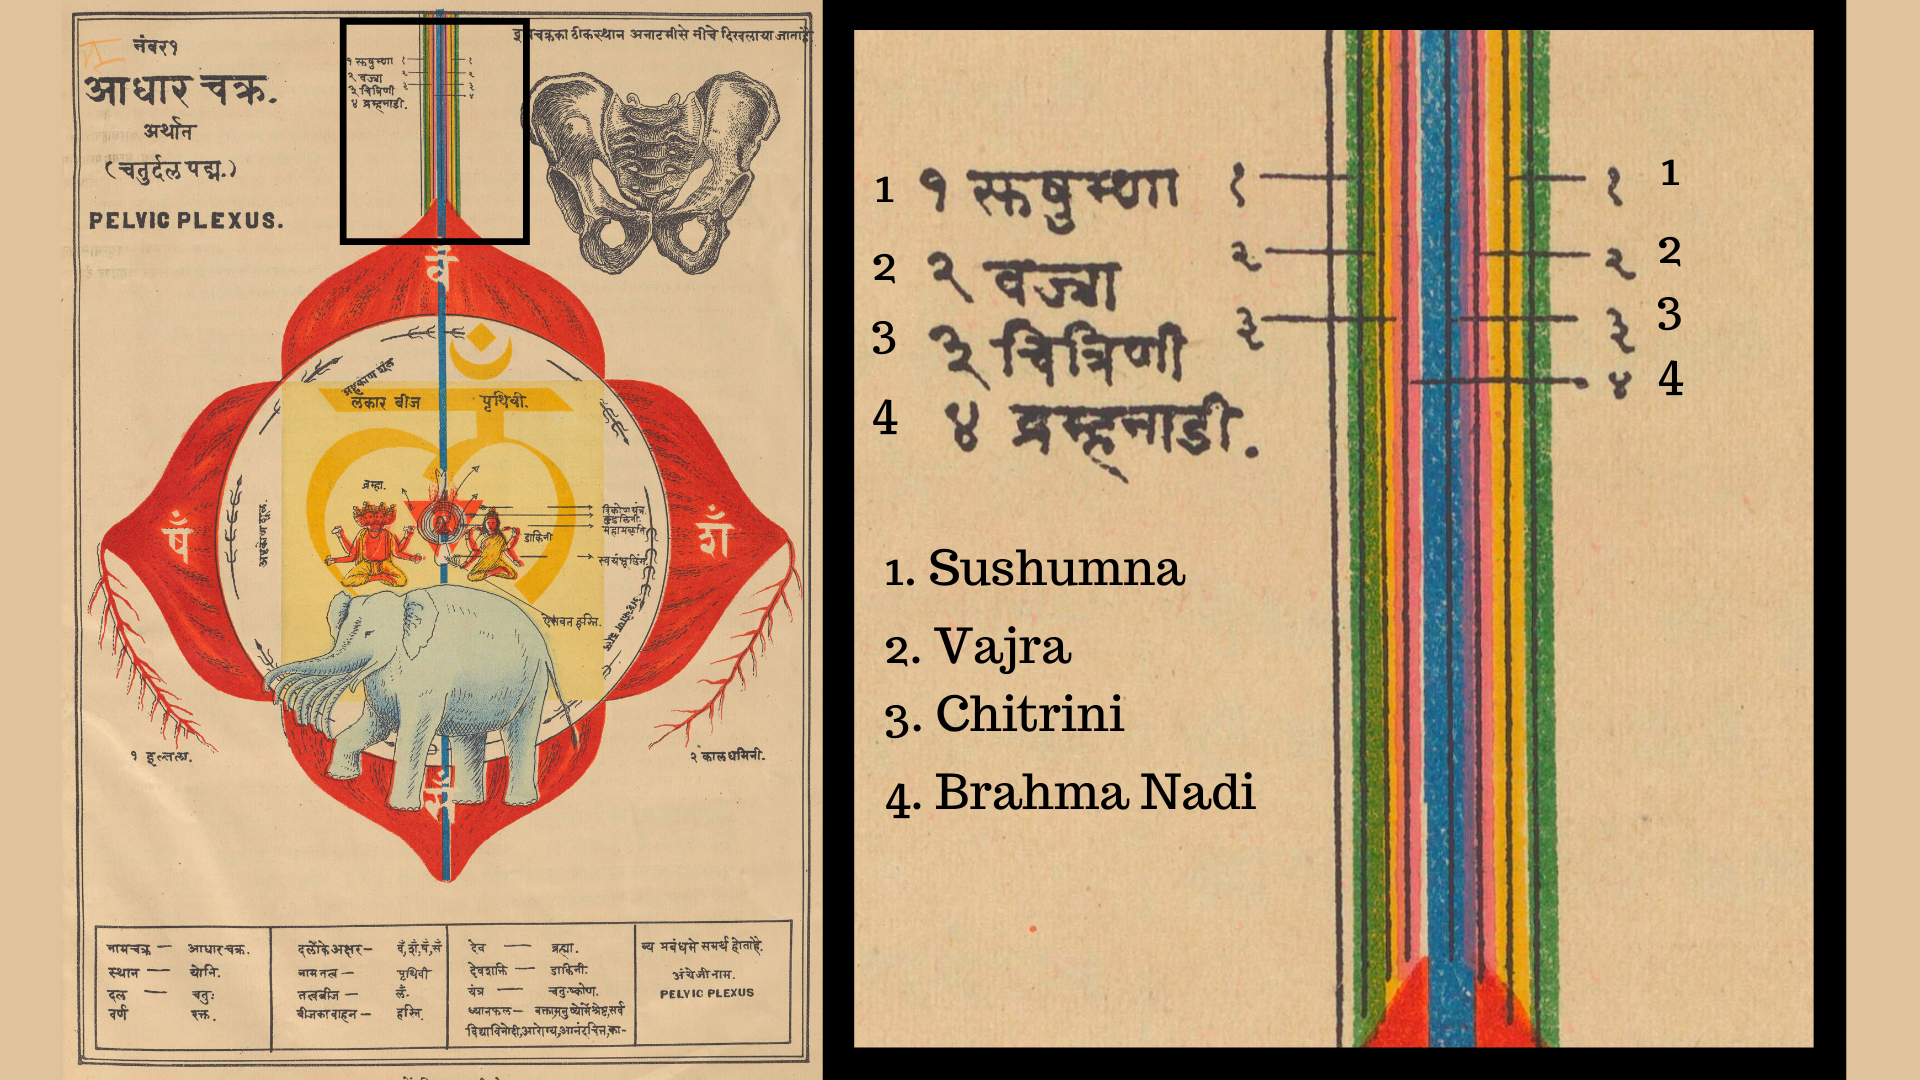 नंबर१
आधार चक्र.
अर्थात
(चतुर्दल पद्म.)
PELVIC PLEXUS.
१ सुषुम्णा १ १
२ वज्रा २ २
३ चित्रिणी ३ ३
४ ब्रम्हनाडी. ४
चक्रका ठीकस्थान अनाटमीसे नीचे दिखलाया जाताहै
वँ
लंकार बीज पृथिवी.
ब्रम्हा.
त्रिकोणयंत्र.
डाकिनी
षँ
शँ
ऐरावत हस्ति.
सँ
२ कालधमिनी.
नामचक्र — आधारचक्र.
स्थान — योनि.
दल — चतुः
वर्ण रक्त.
दलोंकेअक्षर— वँ,शँ,षँ,सँ
नामतत्व— पृथिवी
तत्वबीज— लँ.
बीजकावाहन— हस्ति.
देव — ब्रह्मा.
देवशक्ति — डाकिनी.
यंत्र — चतुःष्कोण.
ध्यानफल—
विद्याविनोदी,आरोग्य,आनंदचित्त,का-
समर्थ होताहै.
अंग्रेजीनाम.
PELVIC PLEXUS
1 १ सुषुम्णा १ १ 1
2 २ वज्रा २ २ 2
3 ३ चित्रिणी ३ ३ 3
4 ४ ब्रम्हनाडी. ४ 4
1. Sushumna
2. Vajra
3. Chitrini
4. Brahma Nadi